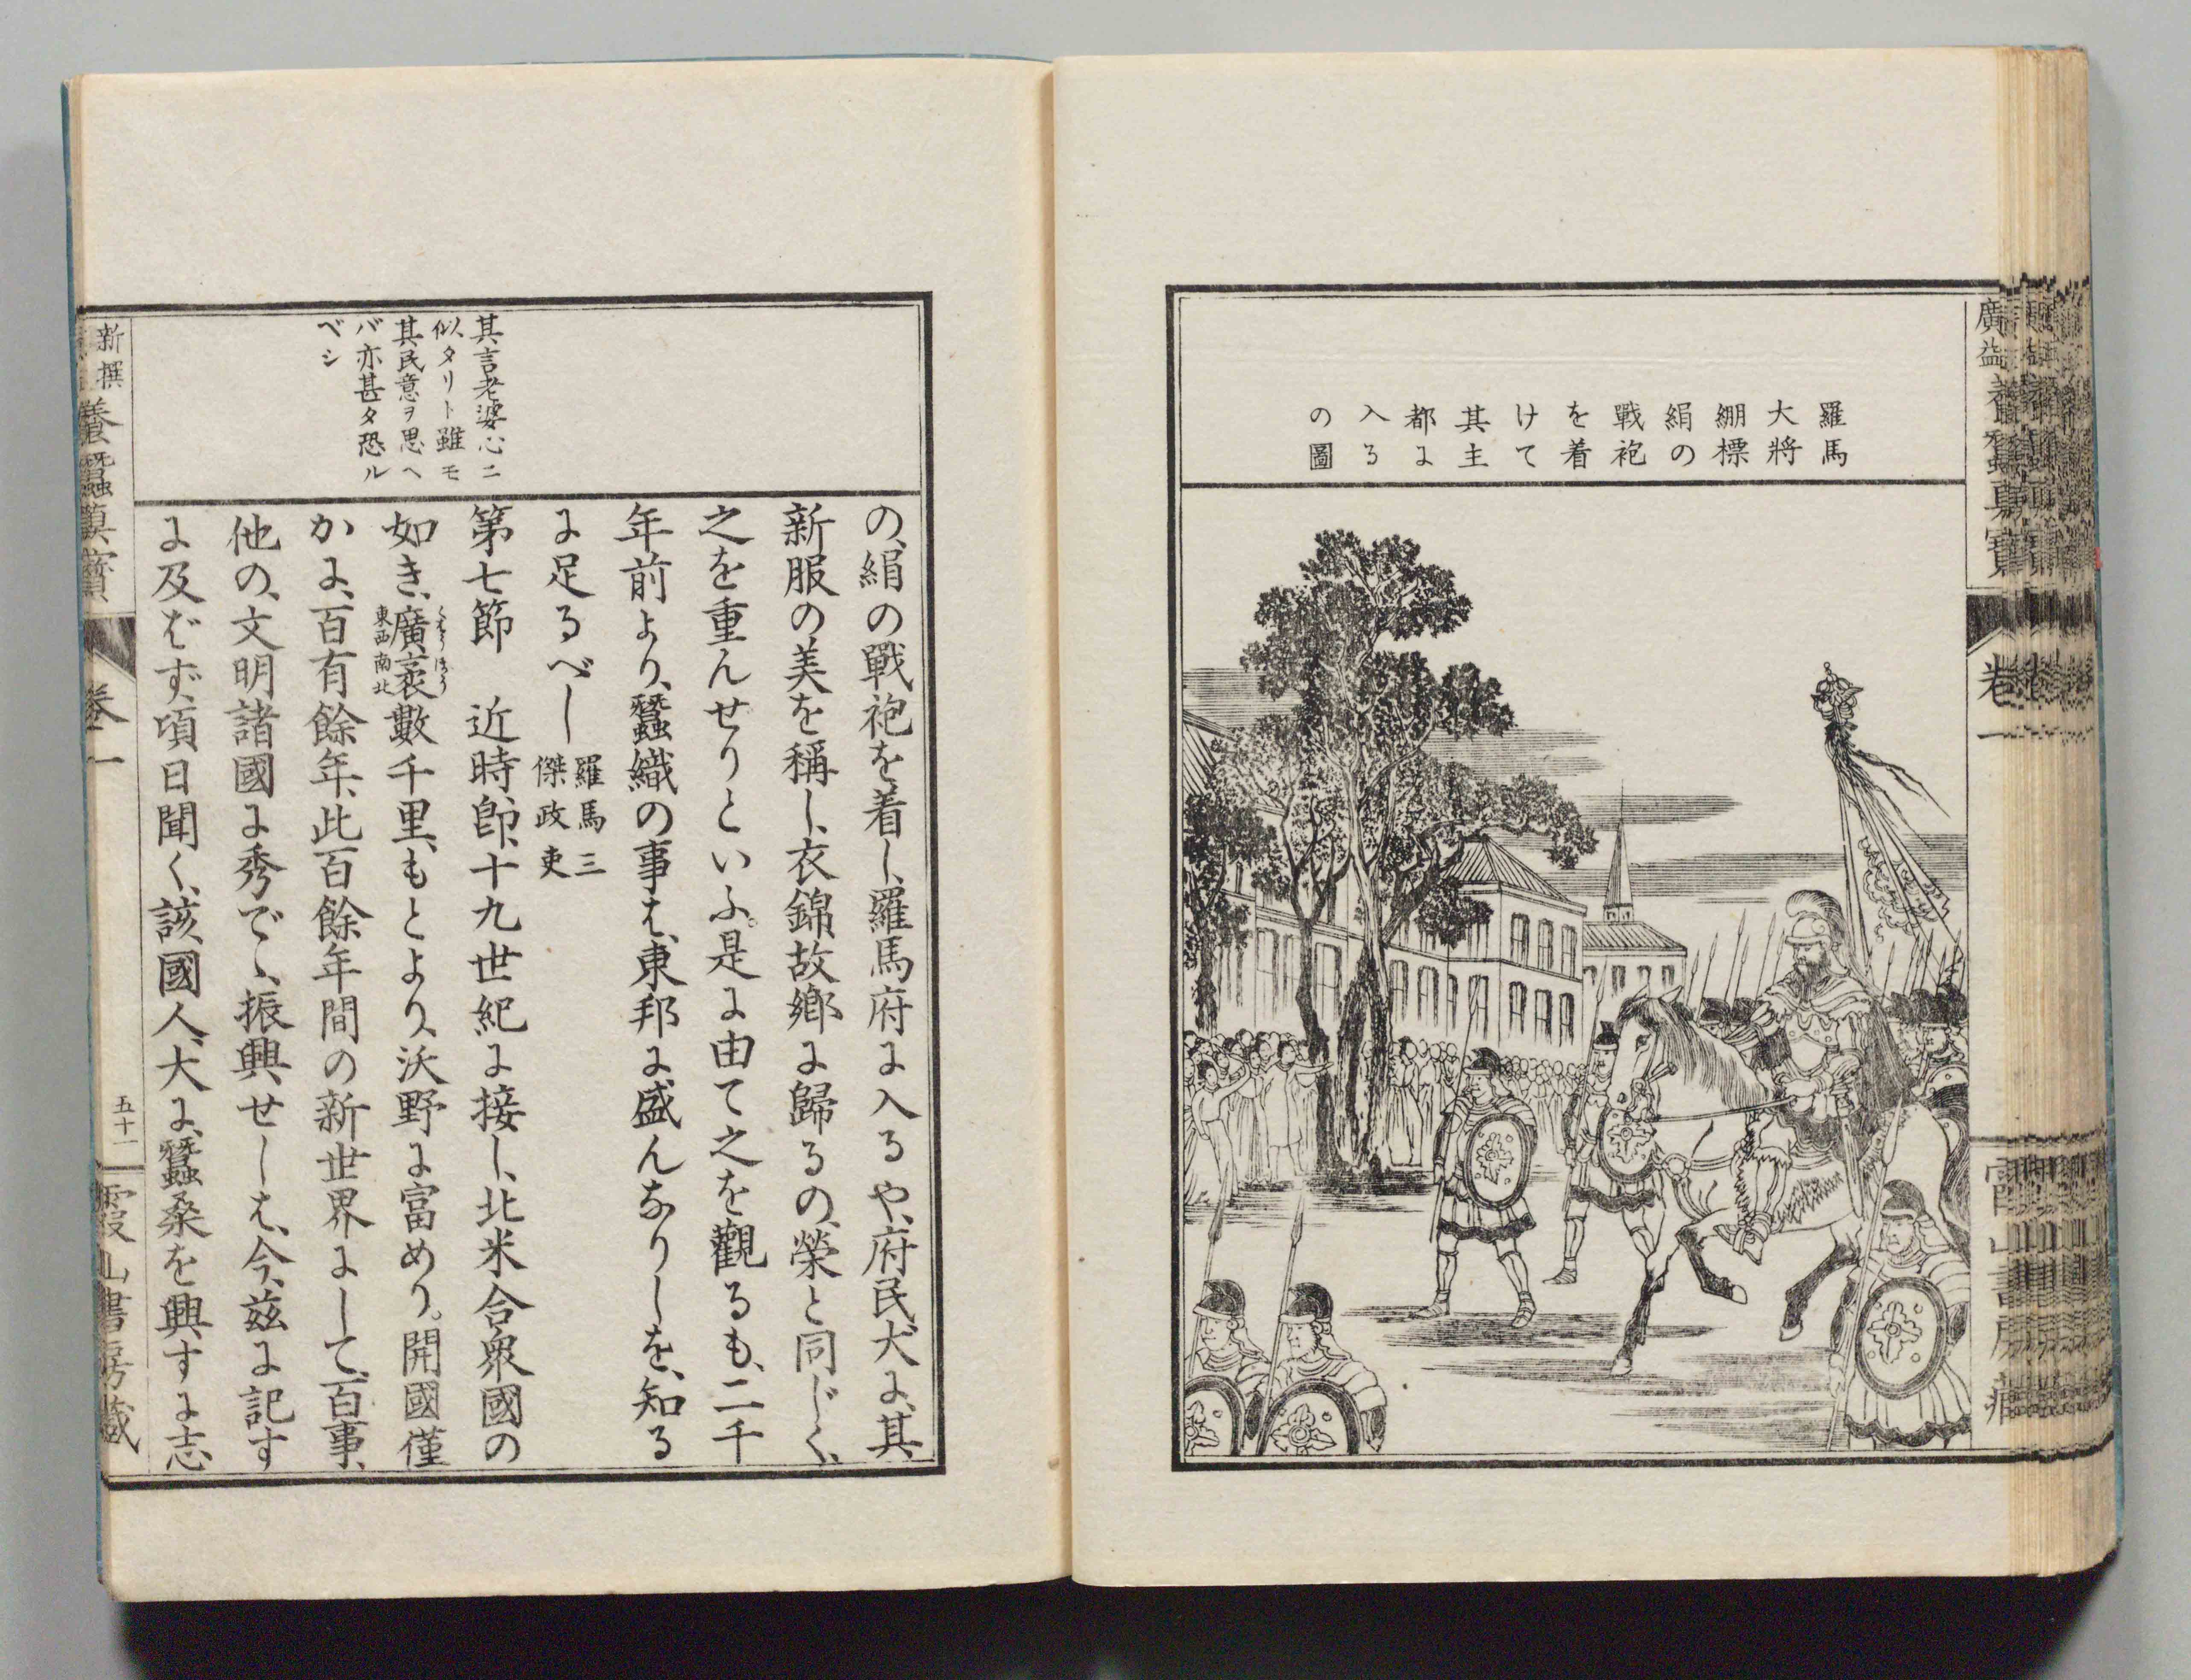 廣益
養蠶眞寳
卷一
霞山書房藏
羅馬
大將
綳標
絹の
戰袍
を着
けて
其主
都に
入る
の圖
其言老婆心ニ
似タリト雖モ
其民意ヲ思ヘ
バ亦甚タ恐ル
ベシ
の、絹の戰袍を着し、羅馬府に入るや、府民大に、其
新服の美を稱し、衣錦故鄕に歸るの、榮と同じく、
之を重んせりといふ。是に由て之を觀るも、二千
年前より、蠶織の事は、東邦に盛んなりしを、知る
に足るべし
羅馬三
傑政吏
第七節 近時、卽、十九世紀に接し、北米合衆國の
如き、廣袤數千里、もとより、沃野に富めり。開國僅
くわうぼう
東西南北
かに、百有餘年、此百餘年間の新世界にして、百事、
他の、文明諸國に秀で、振興せしは、今、茲に記す
に及ばず、頃日聞く、該國人、大に、蠶桑を興すに志
新撰
養蠶眞寳
卷一
五十一
霞山書房藏